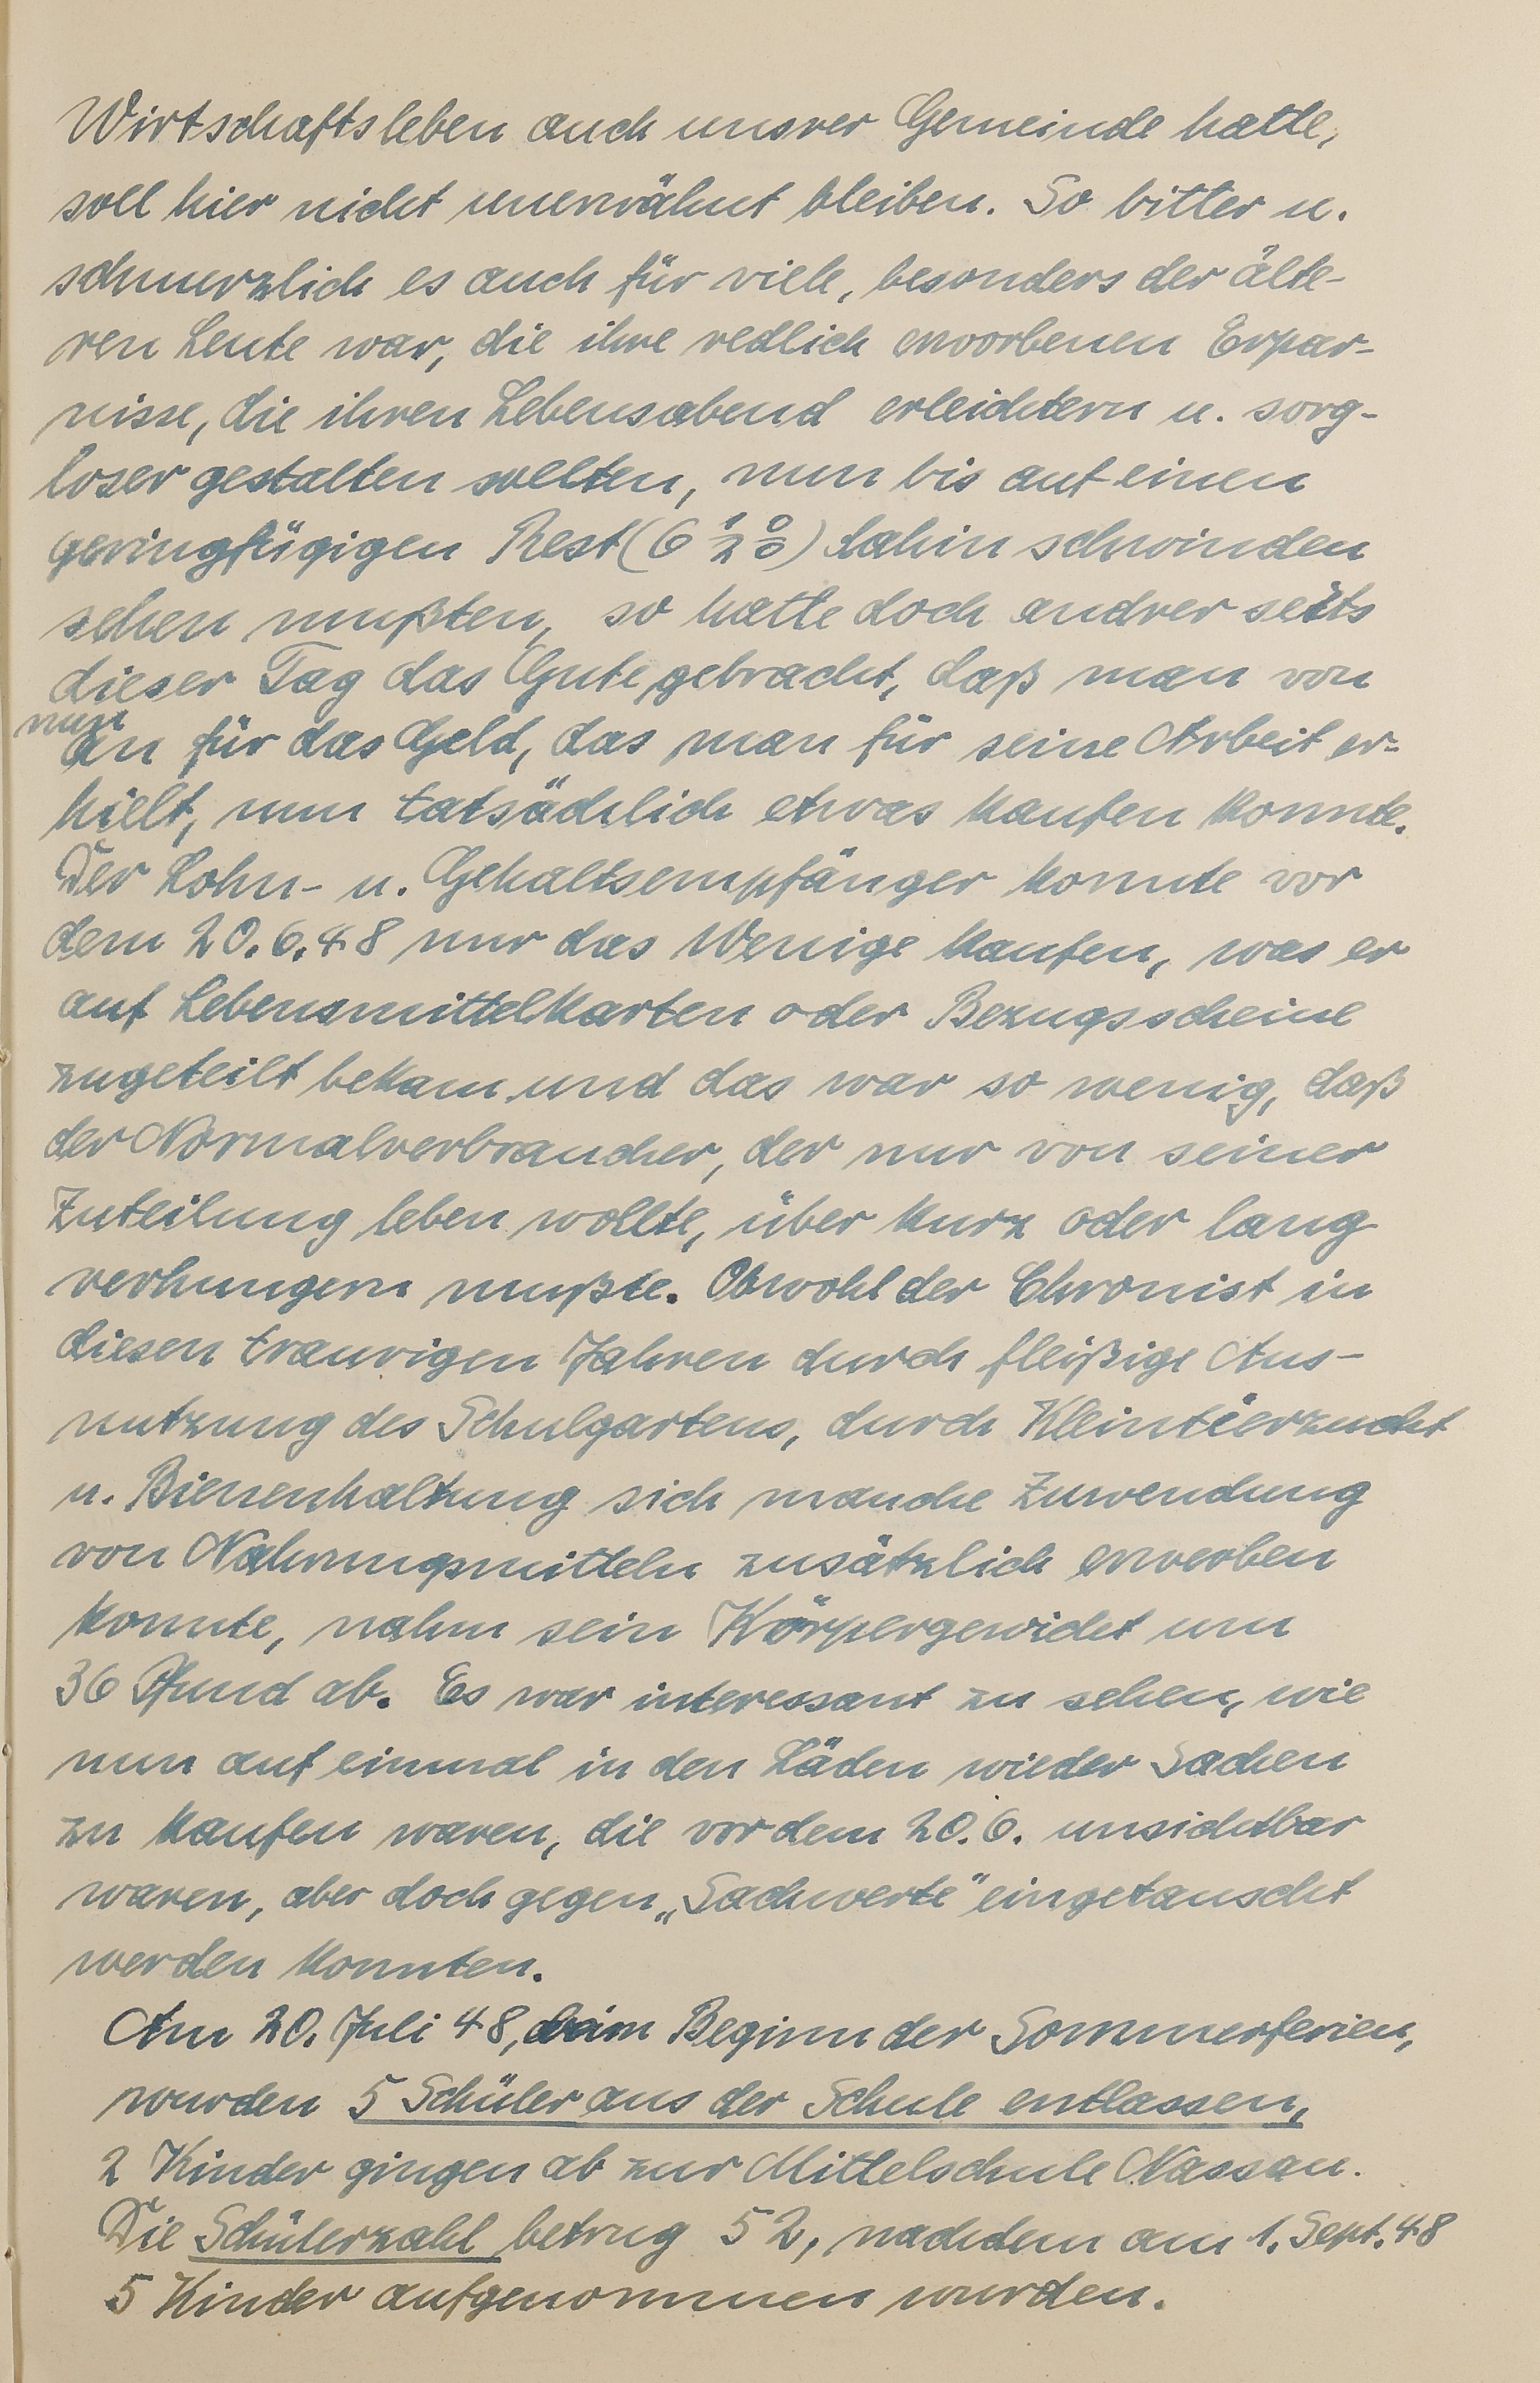 Wirtschaftsleben auch unsrer Gemeinde hatte,
soll hier nicht unerwähnt bleiben. So bitter u.
schmerzlich es auch für viele, besonders der älte-
ren Leute war, die ihre redlich erworbenen Erspar-
nisse, die ihren Lebensabend erleichtern u. sorg-
loser gestalten sollten, nun bis auf einen
geringfügigen Rest (6 1/2 %) dahin schwinden
sehen mußten, so hatte doch andrer seits
dieser Tag das Gute gebracht, daß man von
nun
an für das Geld, das man für seine Arbeit er-
hielt, nun tatsächlich etwas kaufen konnte.
Der Lohn- u. Gehaltsempfänger konnte vor
dem 20.6.48 nur das Wenige kaufen, was er
auf Lebensmittelkarten oder Bezugsscheine
zugeteilt bekam und das war so wenig, daß
der Normalverbraucher, der nur von seiner
Zuteilung leben wollte, über kurz oder lang
verhungern mußte. Obwohl der Chronist in
diesen traurigen Jahren durch fleißige Aus-
nutzung des Schulgartens, durch Kleintierzucht
u. Bienenhaltung sich manche Zuwendung
von Nahrungsmitteln zusätzlich erwerben
konnte, nahm sein Körpergewicht um
36 Pfund ab. Es war interessant zu sehen, wie
nun auf einmal in den Läden wieder Sachen
zu kaufen waren, die vor dem 20.6. unsichtbar
waren, aber doch gegen „Sachwerte" eingetauscht
werden konnten.
Am 20. Juli 48, beim Beginn der Sommerferien,
wurden 5 Schüler aus der Schule entlassen,
2 Kinder gingen ab zur Mittelschule Nassau.
Die Schülerzahl betrug 52, nachdem am 1. Sept. 48
5 Kinder aufgenommen wurden.